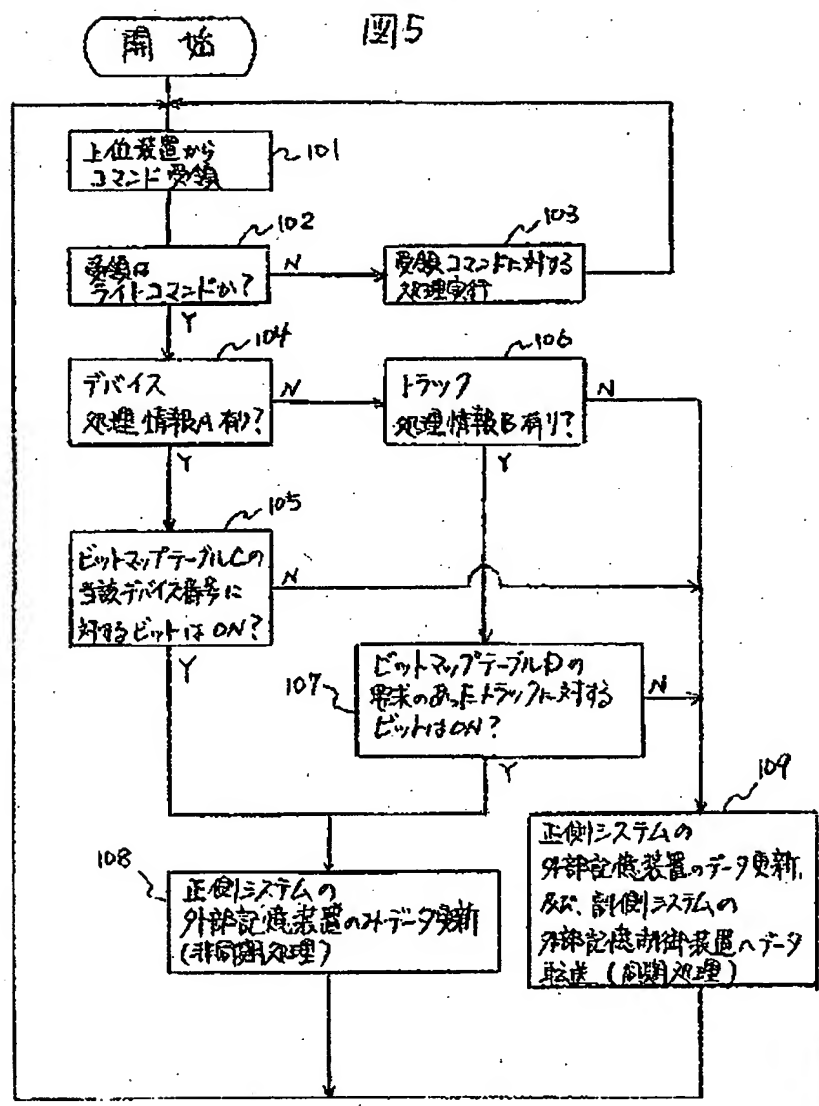 図5
開始
上位装置から
コマンド受領
101
102
受領は
ライトコマンドか?
N
Y
103
受領コマンドに対する
処理実行
104
デバイス
処理情報A有り?
N
Y
106
トラック
処理情報B有り?
N
Y
105
ビットマップテーブルCの
当該デバイス番号に
対するビットはON?
N
Y
107
ビットマップテーブルDの
要求のあったトラックに対する
ビットはON?
N
Y
108
正側システムの
外部記憶装置のみデータ更新
(非同期処理)
109
正側システムの
外部記憶装置のデータ更新、
及び、副側システムの
外部記憶制御装置へデータ
転送(同期処理)